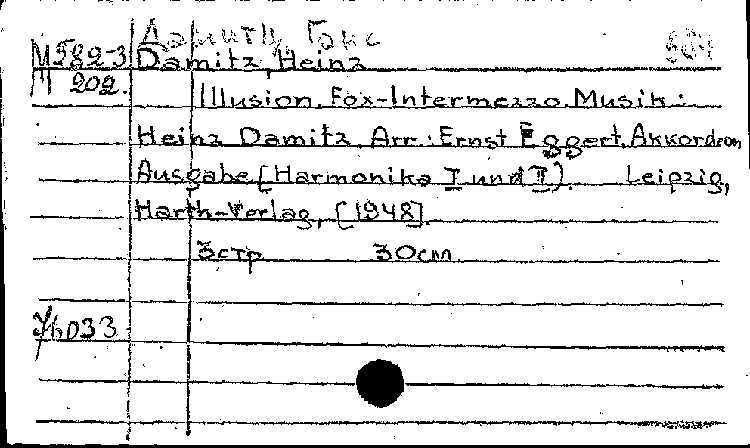 Дамитц Ганс
М582-3 Damitz, Heinz
М 202. Illusion. Fox-Intermezzo. Musik:
Heinz Damitz. Arr.: Ernst Eggert. Akkordeon
Ausgabe [Harmonika I und II). Leipzig,
Harth-Verlag, [1948].
3стр 30см